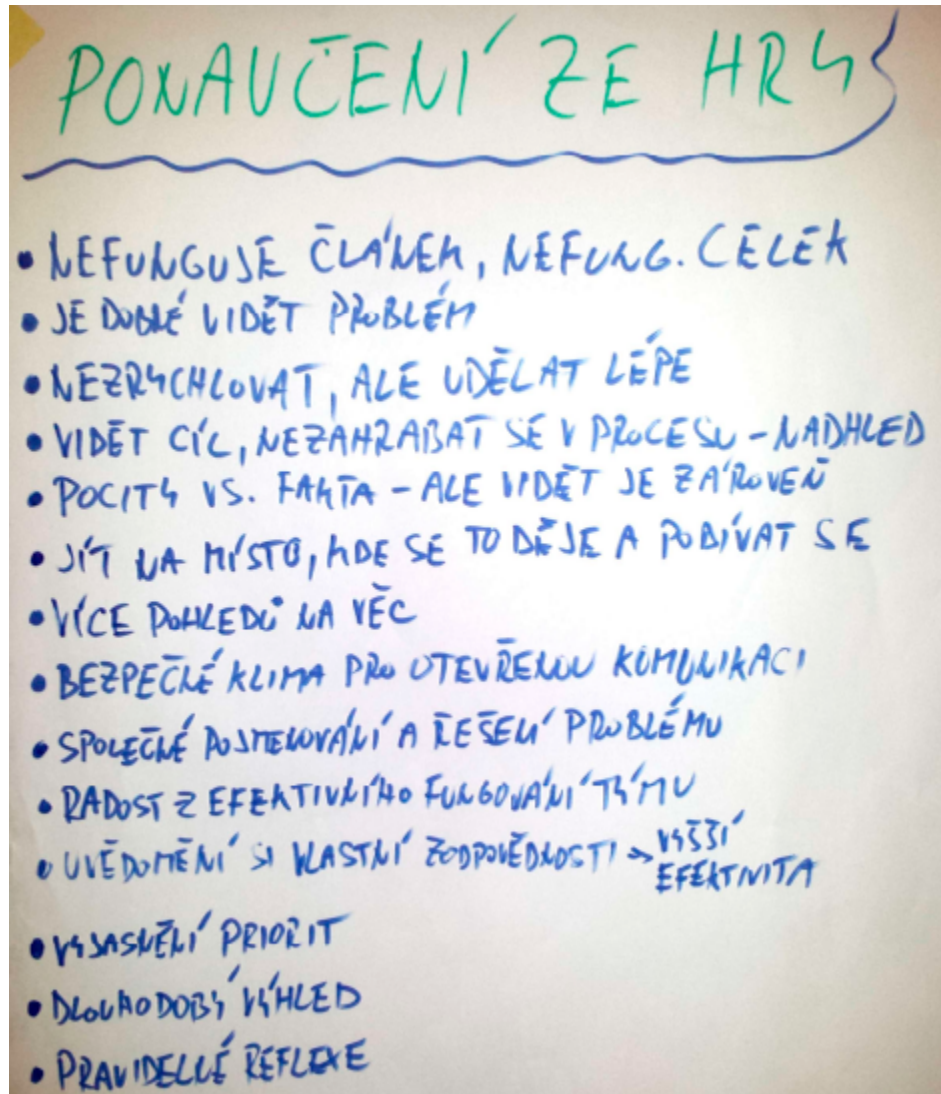 PONAUČENÍ ZE HRY
• NEFUNGUJE ČLÁNEK, NEFUNG. CELEK
• JE DOBRÉ VIDĚT PROBLÉM
• NEZRYCHLOVAT, ALE UDĚLAT LÉPE
• VIDĚT CÍL, NEZAHRABAT SE V PROCESU - NADHLED
• POCITY VS. FAKTA - ALE VIDĚT JE ZÁROVEŇ
• JÍT NA MÍSTO, KDE SE TO DĚJE A PODÍVAT SE
• VÍCE POHLEDŮ NA VĚC
• BEZPEČNÉ KLIMA PRO OTEVŘENOU KOMUNIKACI
• SPOLEČNÉ POJMENOVÁNÍ A ŘEŠENÍ PROBLÉMU
• RADOST Z EFEKTIVNÍHO FUNGOVÁNÍ TÝMU
• UVĚDOMĚNÍ SI VLASTNÍ ZODPOVĚDNOSTI → VYŠŠÍ
EFEKTIVITA
• VYJASNĚNÍ PRIORIT
• DLOUHODOBÝ VÝHLED
• PRAVIDELNÉ REFLEXE